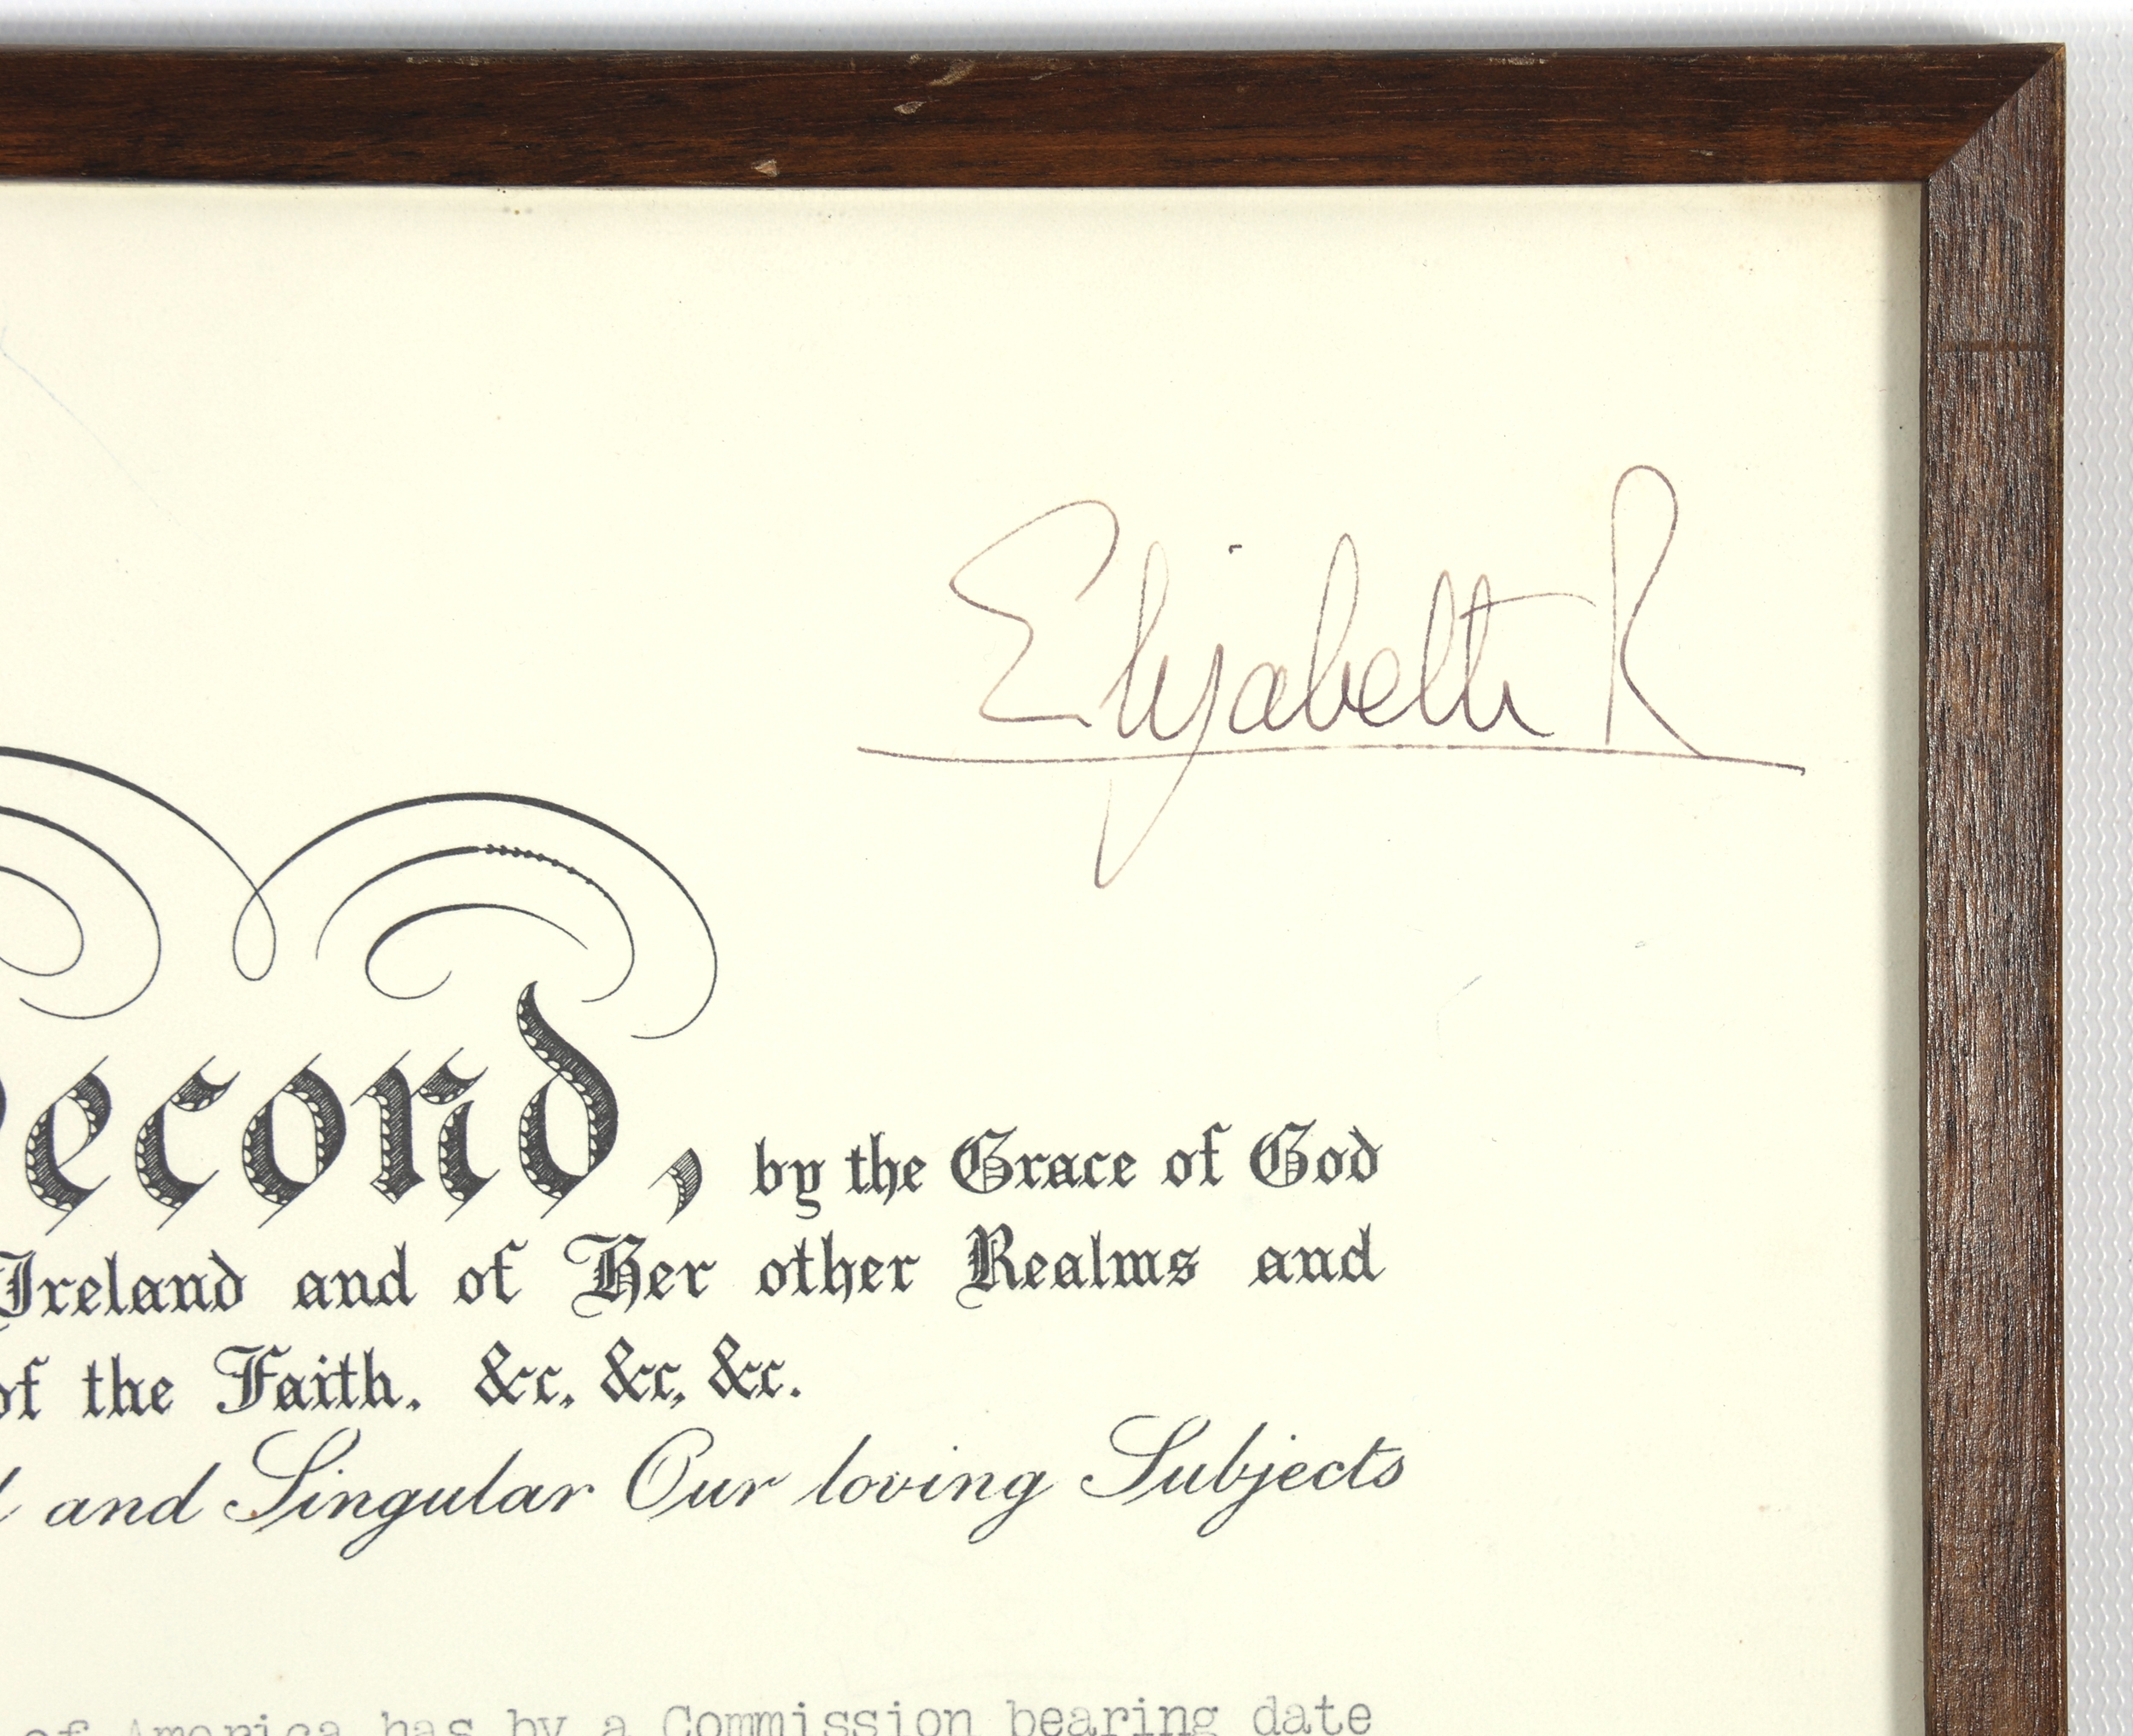 Elizabeth R
Second, by the Grace of God
Ireland and of Her other Realms and
of the Faith, &c, &c, &c.
and Singular Our loving Subjects
of America has by a Commission bearing date